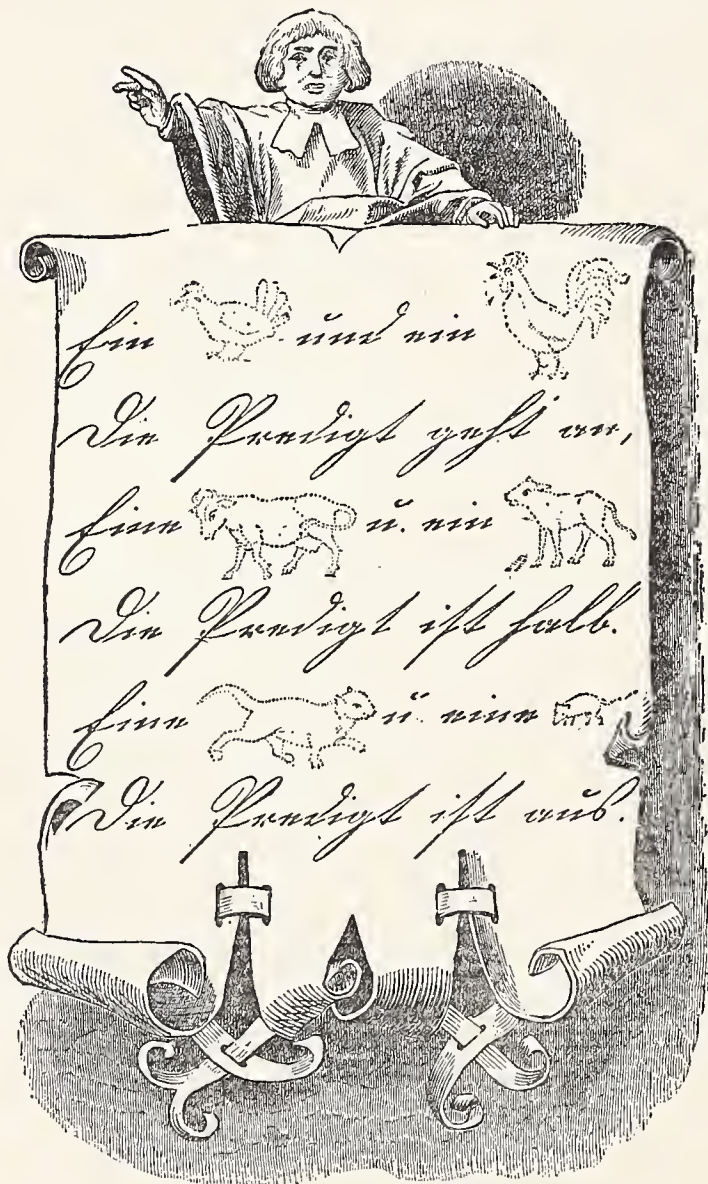 Ein und ein
Die Predigt geht an,
Eine u. ein
Die Predigt ist halb.
Eine u. eine
Die Predigt ist aus.